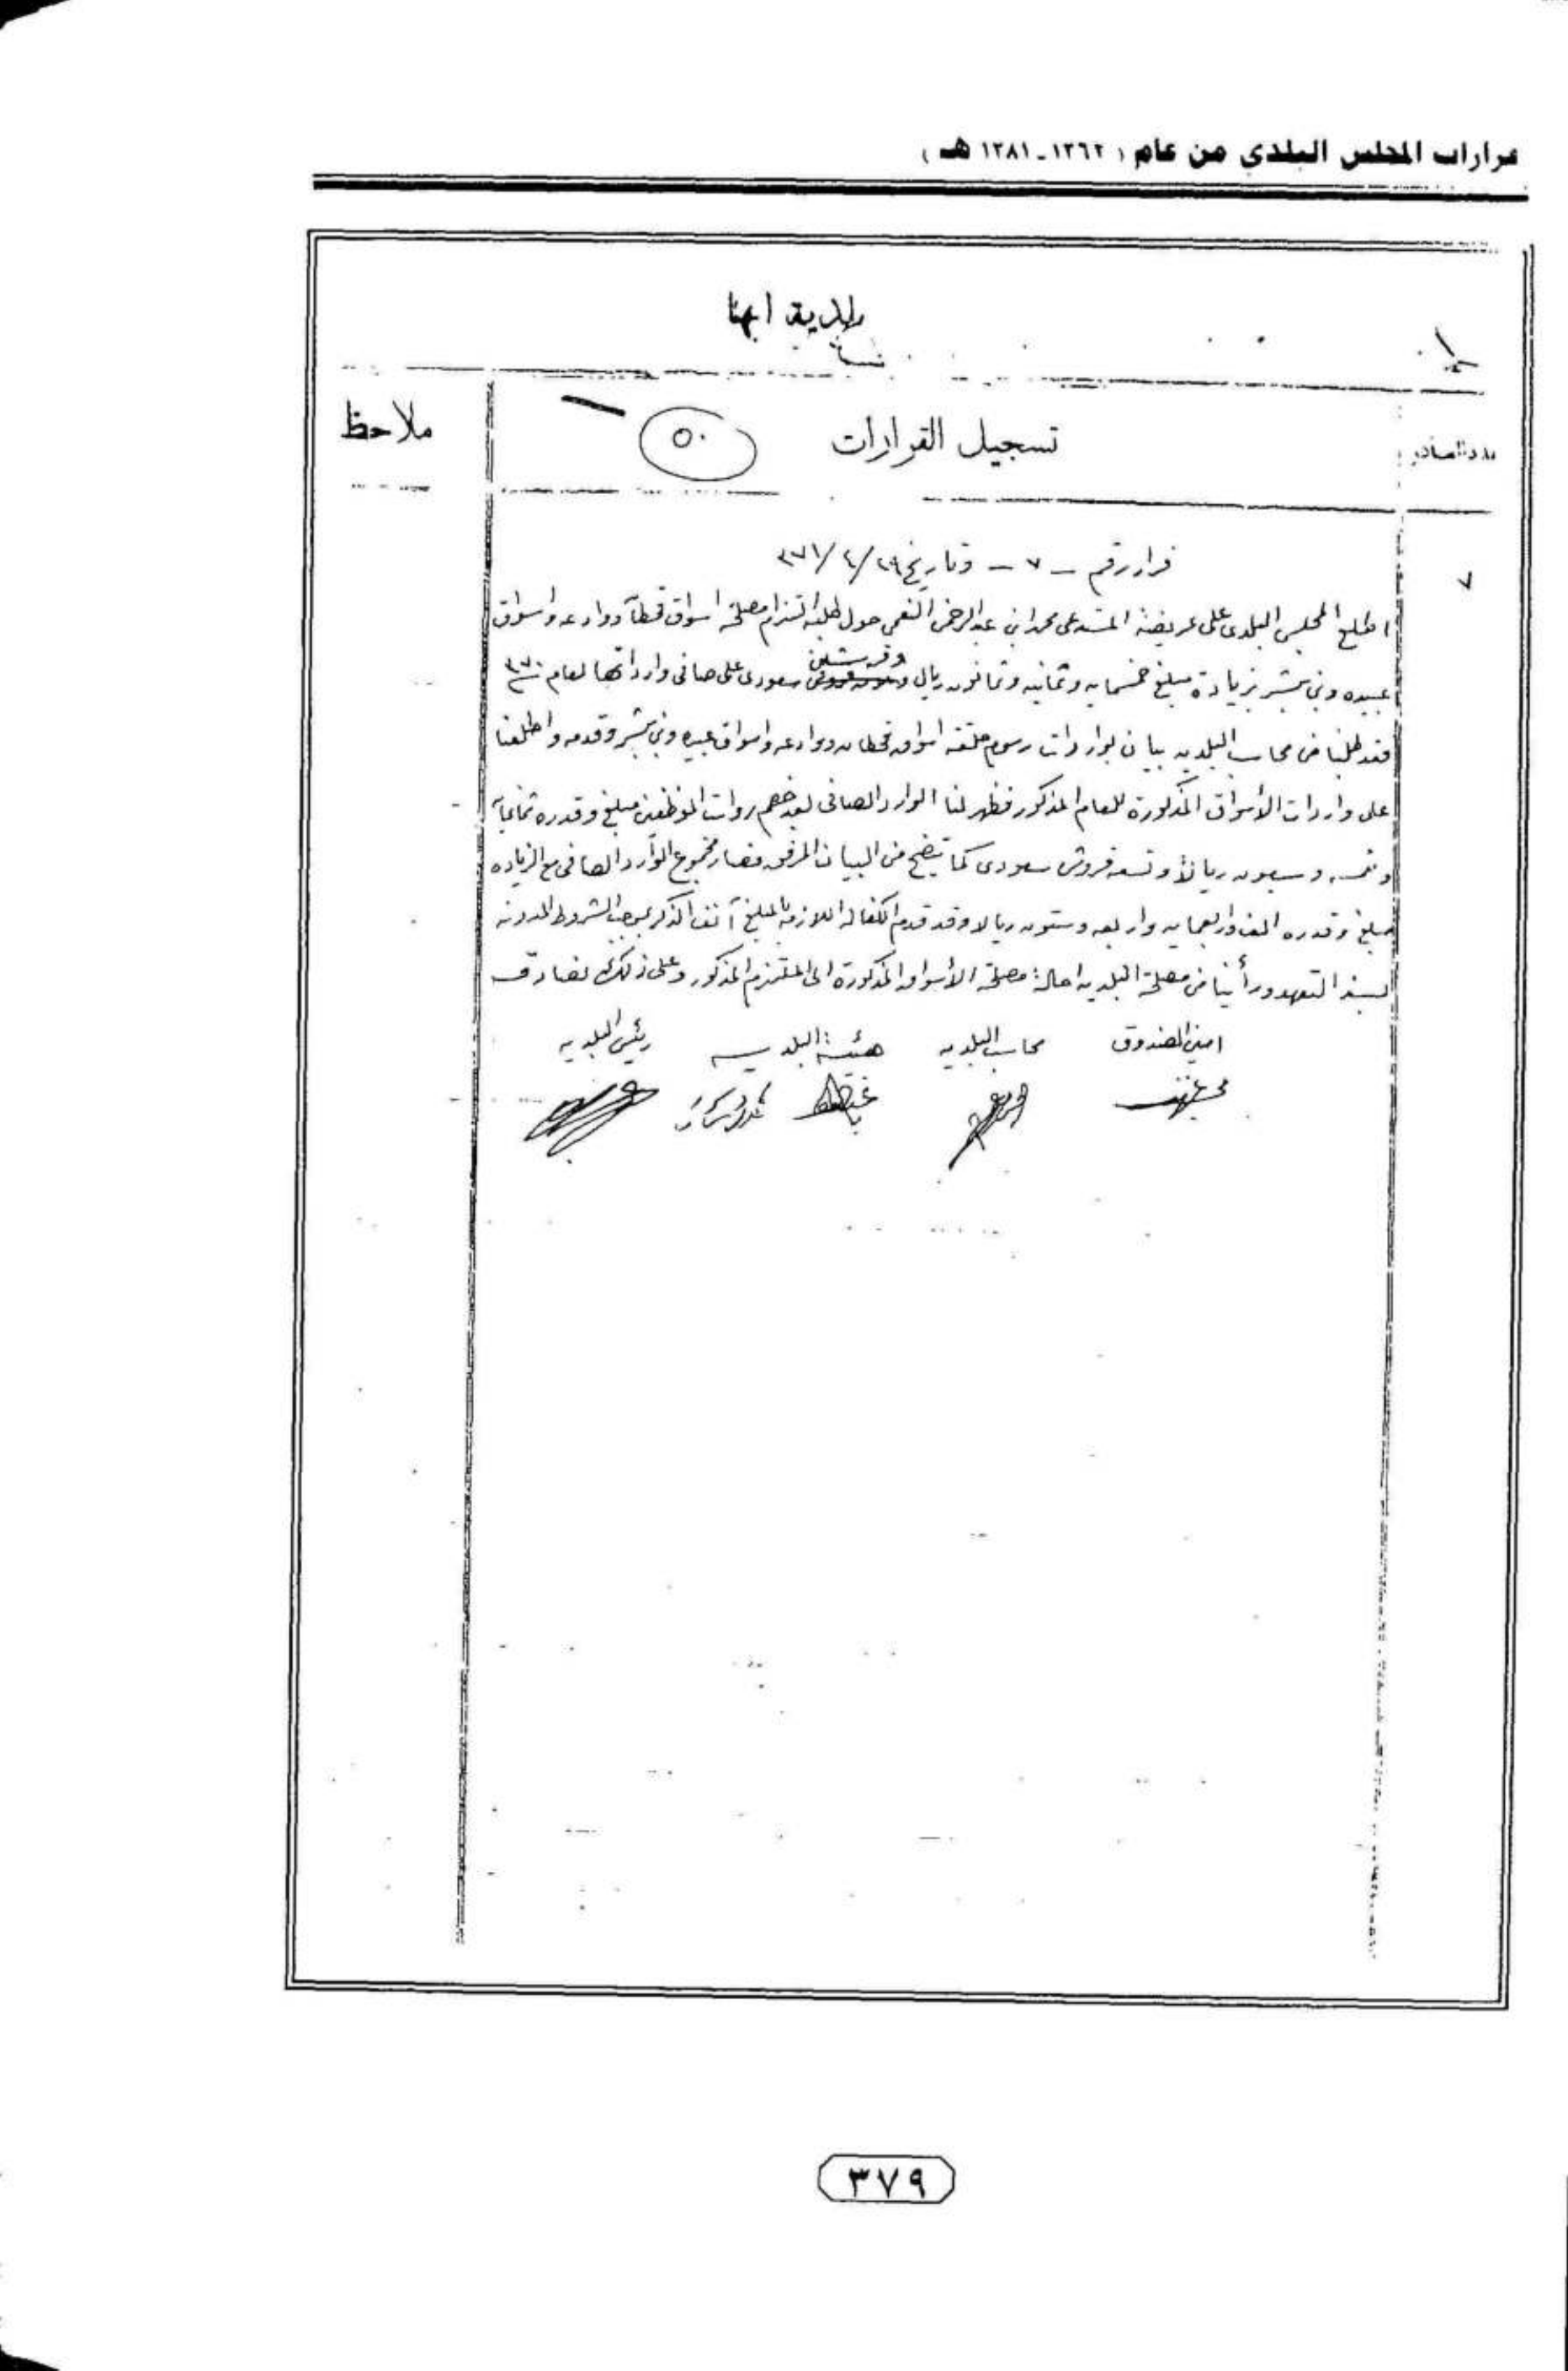 قرارات المجلس البلدي من عام ( ١٣٦٢ - ١٣٨١ هـ )
بلدية ابها
عدد الصادر
تسجيل القرارات
٥٠
ملاحظ
٧
قرار رقم - ٧ - وتاريخ ٢٩/ ٤/ ٣٧١
اطلع المجلس البلدي على عريضة المستدعي محمد ابن عبدالرحمن النعمي حول طلبه التزام مصلحة اسواق قحطان ووادعه واسواق
عبيده وبني بشر بزيادة مبلغ خمسمايه وثمانيه وثمانون ريال وقرشين سعودي على صافي وارداتها لعام ٣٧٠
فقد طلبنا من محاسب البلديه بيان بواردات رسوم حلقة اسواق قحطان ووادعه واسواق عبيده وبني بشر وقدمه واطلعنا
على واردات الأسواق المذكورة للعام المذكور فظهر لنا الوارد الصافي بعد خصم رواتب الموظفين مبلغ وقدره ثمانمايه
وخمسه وسبعون ريالاً وتسعه قروش سعودي كما يتضح من البيان المرفق فصار مجموع الوارد الصافي مع الزياده
مبلغ وقدره الف واربعمايه واربعه وستون ريالا وقد قدم الكفاله اللازمه بالمبلغ آنف الذكر بموجب الشروط المدونه
بسند التعهد ورأينا من مصلحة البلديه احالة مصلحة الأسواق المذكورة الى الملتزم المذكور وعلى ذلك نصادق
امين الصندوق محاسب البلديه هيئة البلديه رئيس البلديه
٣٧٩